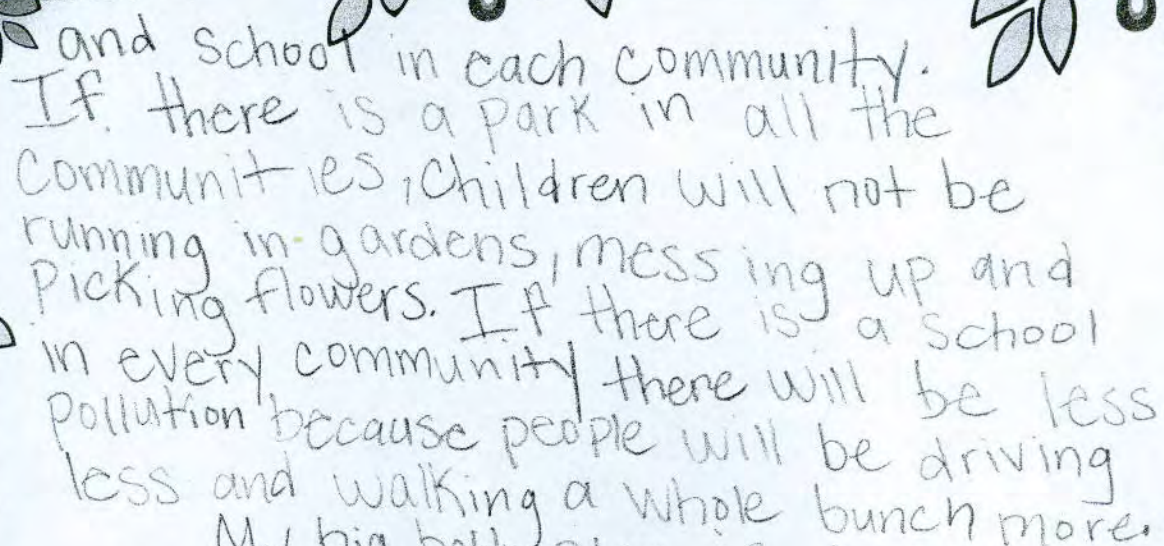 and school in each community.
If there is a park in all the
communities, children will not be
running in gardens, messing up and
picking flowers. If there is a school
in every community there will be less
pollution because people will be driving
less and walking a whole bunch more.
My big